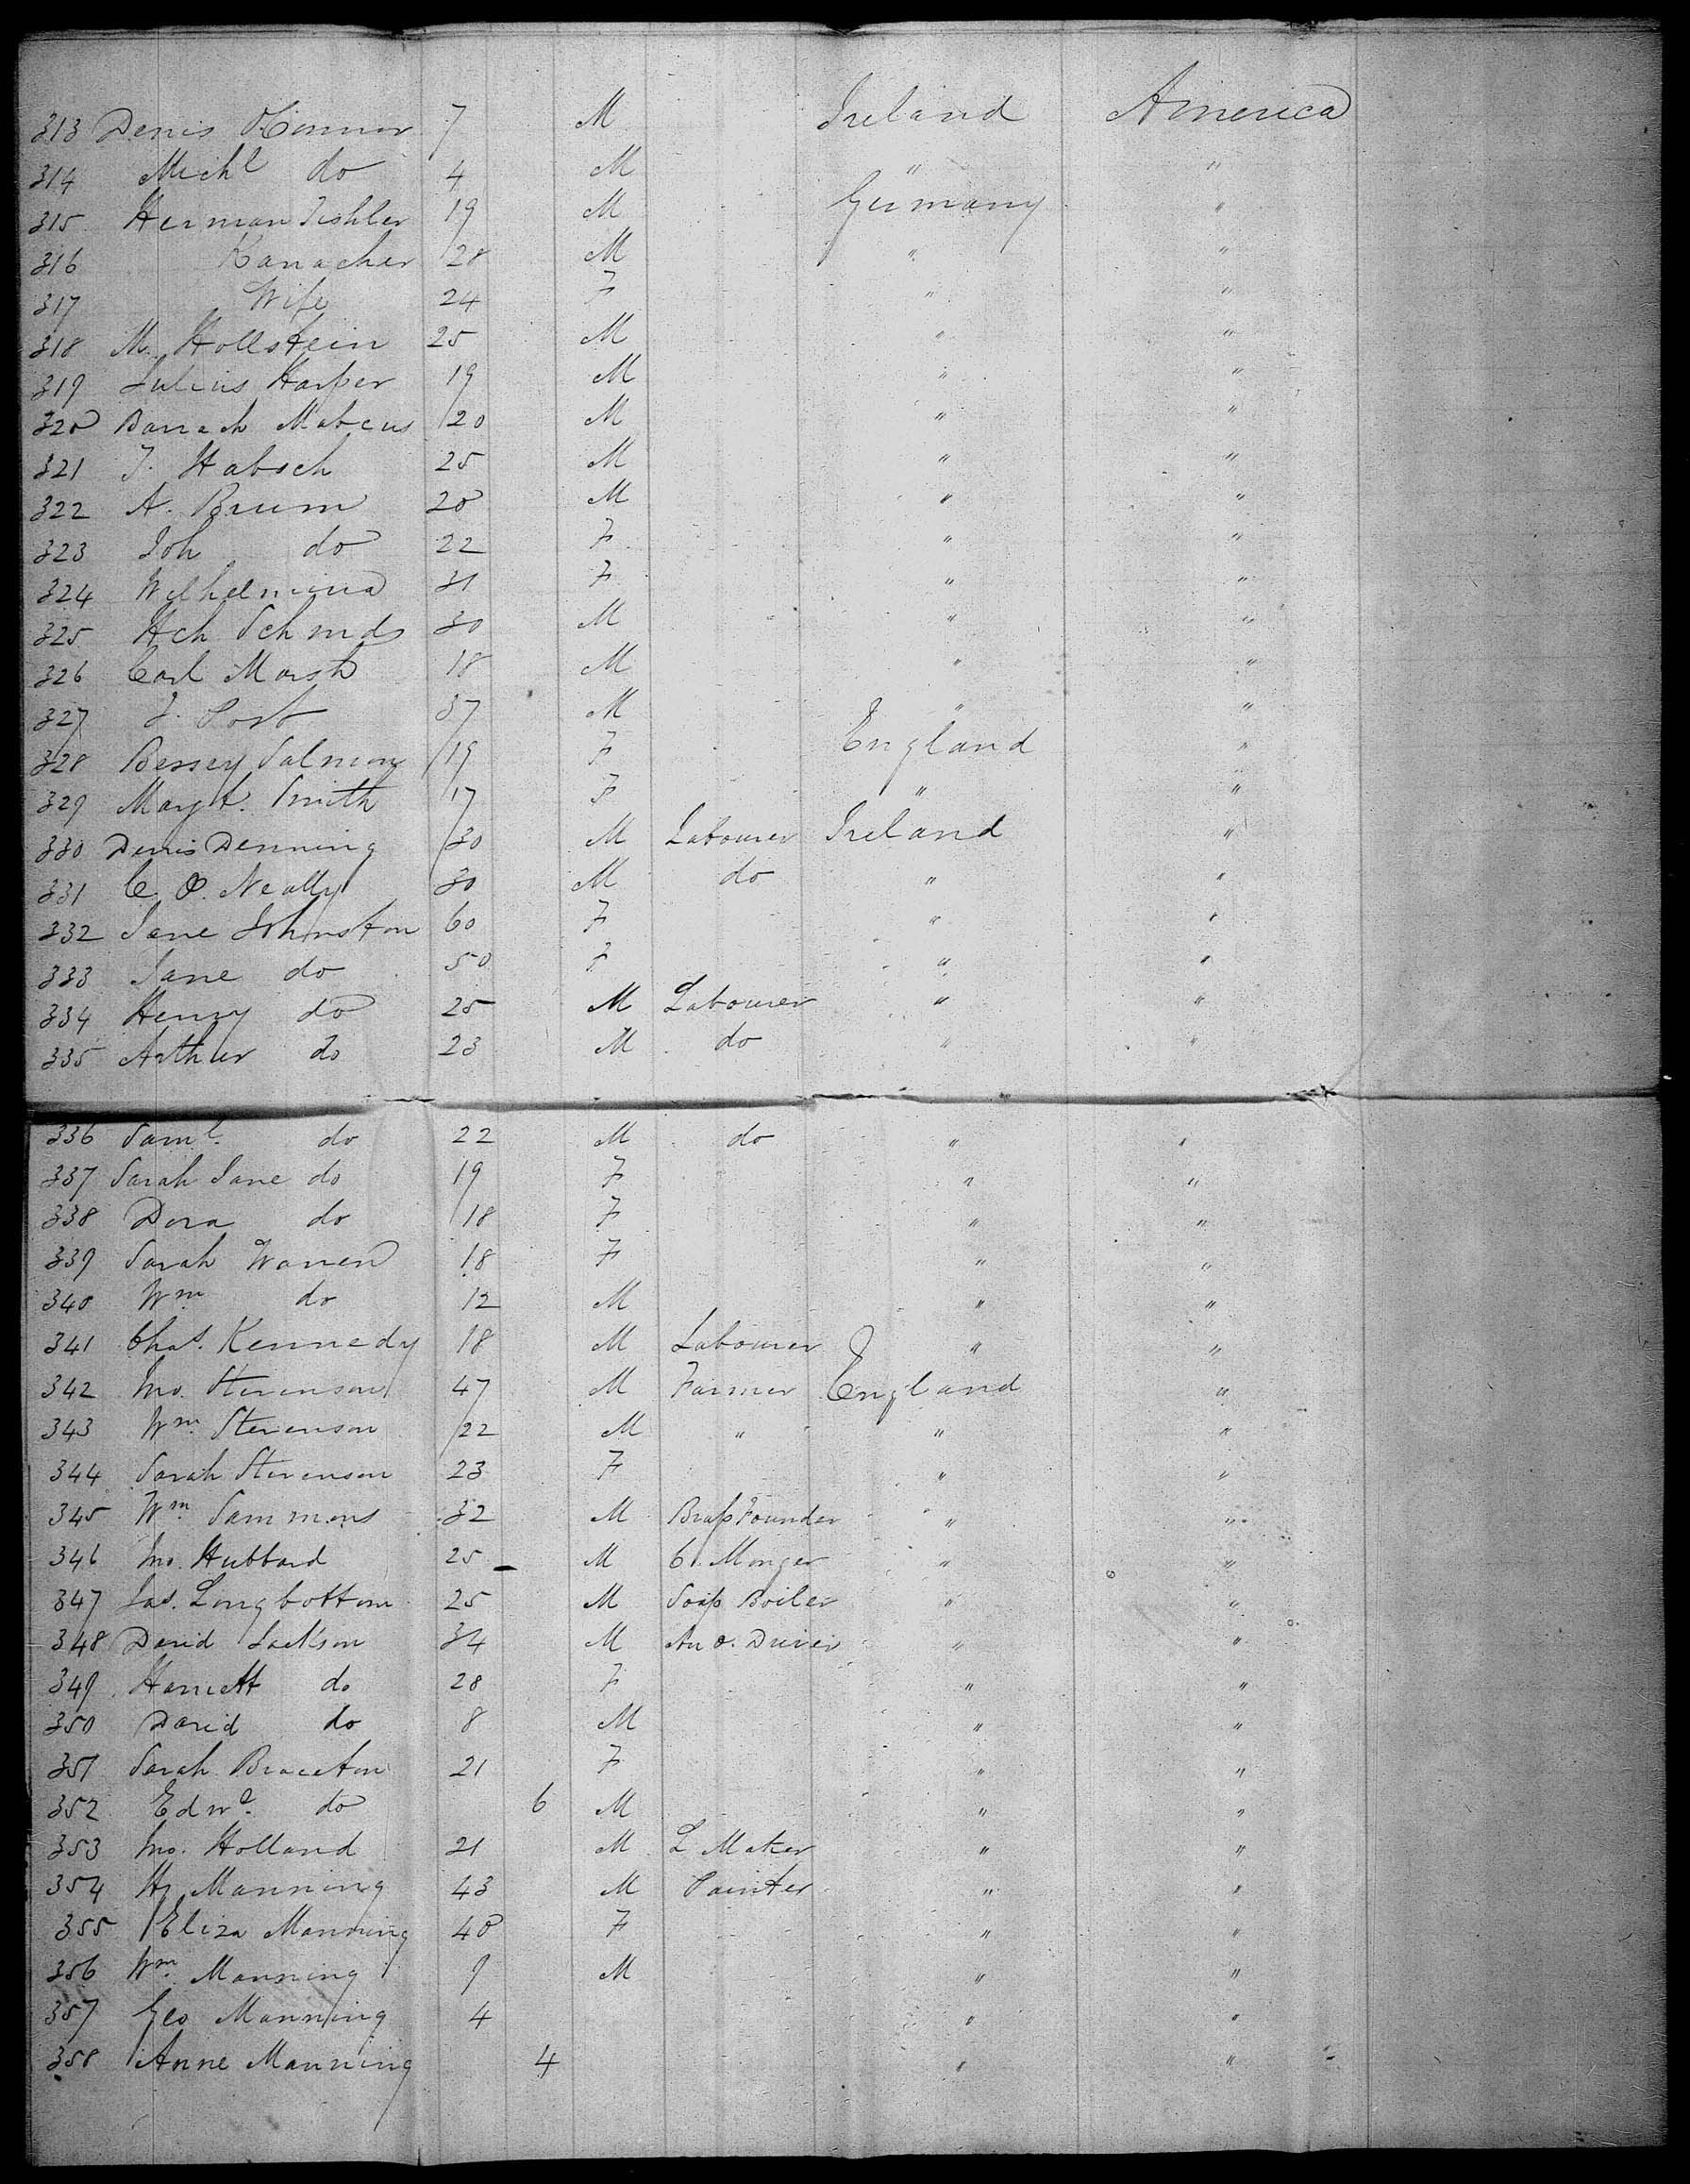 313 Denis O'Connor 7 M Ireland America
314 Michl do 4 M " "
315 Herman Tishler 19 M Germany "
316 Kanacher 28 M " "
317 Wife 24 F " "
318 M. Hollstein 25 M " "
319 Julius Harper 19 M " "
320 Barrach Mabcus 20 M " "
321 J. Habsch 25 M " "
322 A. Brum 20 M " "
323 Joh do 22 F " "
324 Wilhelmina 31 F " "
325 Hch Schmds 30 M " "
326 Carl Marsh 18 M " "
327 J. Post 37 M " "
328 Bessey Salmon 19 F England "
329 Mary A. Smith 17 F " "
330 Denis Denning 30 M Labourer Ireland "
331 C. O. Neally 30 M do " "
332 Jane Johnston 60 F " "
333 Jane do 50 F " "
334 Henry do 25 M Labourer " "
335 Arthur do 23 M do " "
336 Saml do 22 M do " "
337 Sarah Jane do 19 F " "
338 Dora do 18 F " "
339 Sarah Warren 18 F " "
340 Wm do 12 M " "
341 Chas. Kennedy 18 M Labourer " "
342 Jno. Stevenson 47 M Farmer England "
343 Wm Stevenson 22 M " " "
344 Sarah Stevenson 23 F " "
345 Wm Sammons 32 M Brass Founder " "
346 Jno. Hubbard 25 M C. Monger " "
347 Jas. Longbottom 25 M Soap Boiler " "
348 David Jackson 34 M Driver " "
349 Harriett do 28 F " "
350 David do 8 M " "
351 Sarah Braceton 21 F " "
352 Edwd do 6 M " "
353 Jno. Holland 21 M L Maker " "
354 Hy Manning 43 M Painter " "
355 Eliza Manning 40 F " "
356 Wm Manning 9 M " "
357 Geo Manning 4 " "
358 Anne Manning 4 " "